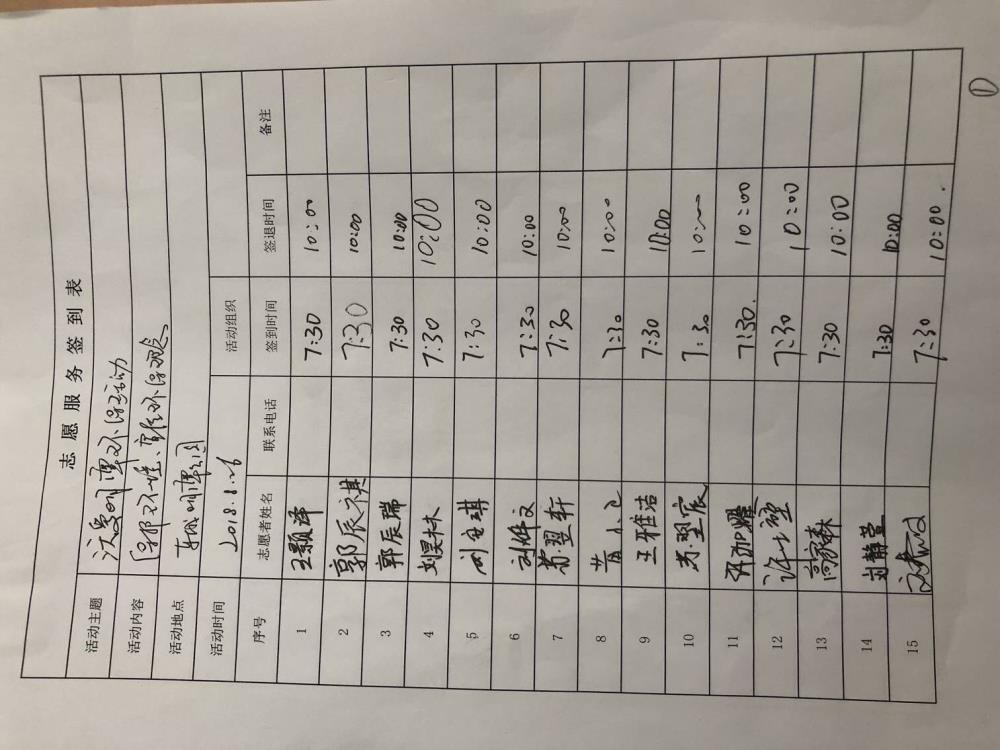 志愿服务签到表
活动主题 关爱明潭环保活动
活动内容
活动地点 东城明潭公园
活动时间 2018.8.26 活动组织
序号 志愿者姓名 联系电话 签到时间 签退时间 备注
1 王颢洋 7:30 10:00
2 郭辰祺 7:30 10:00
3 郭辰瑞 7:30 10:00
4 刘昊林 7:30 10:00
5 7:30 10:00
6 7:30 10:00
7 苏翌轩 7:30 10:00
8 7:30 10:00
9 王雅洁 7:30 10:00
10 苏翌宸 7:30 10:00
11 7:30. 10:00
12 7:30 10:00
13 高家森 7:30 10:00
14 刘静萱 7:30 10:00
15 7:30 10:00.
①